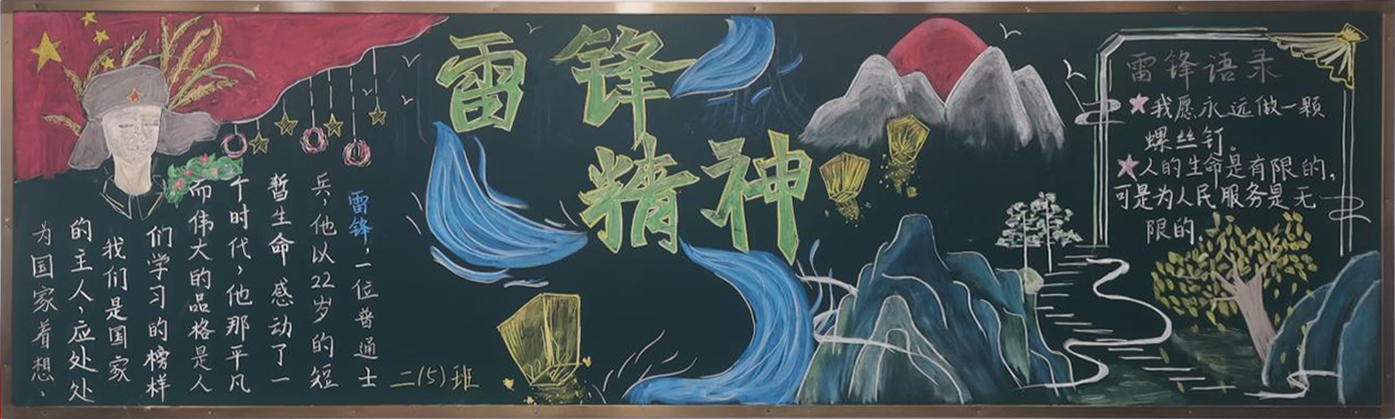 雷锋
精神
雷锋，一位普通士
兵，他以22岁的短
暂生命感动了一
个时代，他那平凡
而伟大的品格是人
们学习的榜样
我们是国家
的主人，应处处
为国家着想、
二(5)班
雷锋语录
★我愿永远做一颗
螺丝钉。
★人的生命是有限的，
可是为人民服务是无
限的.